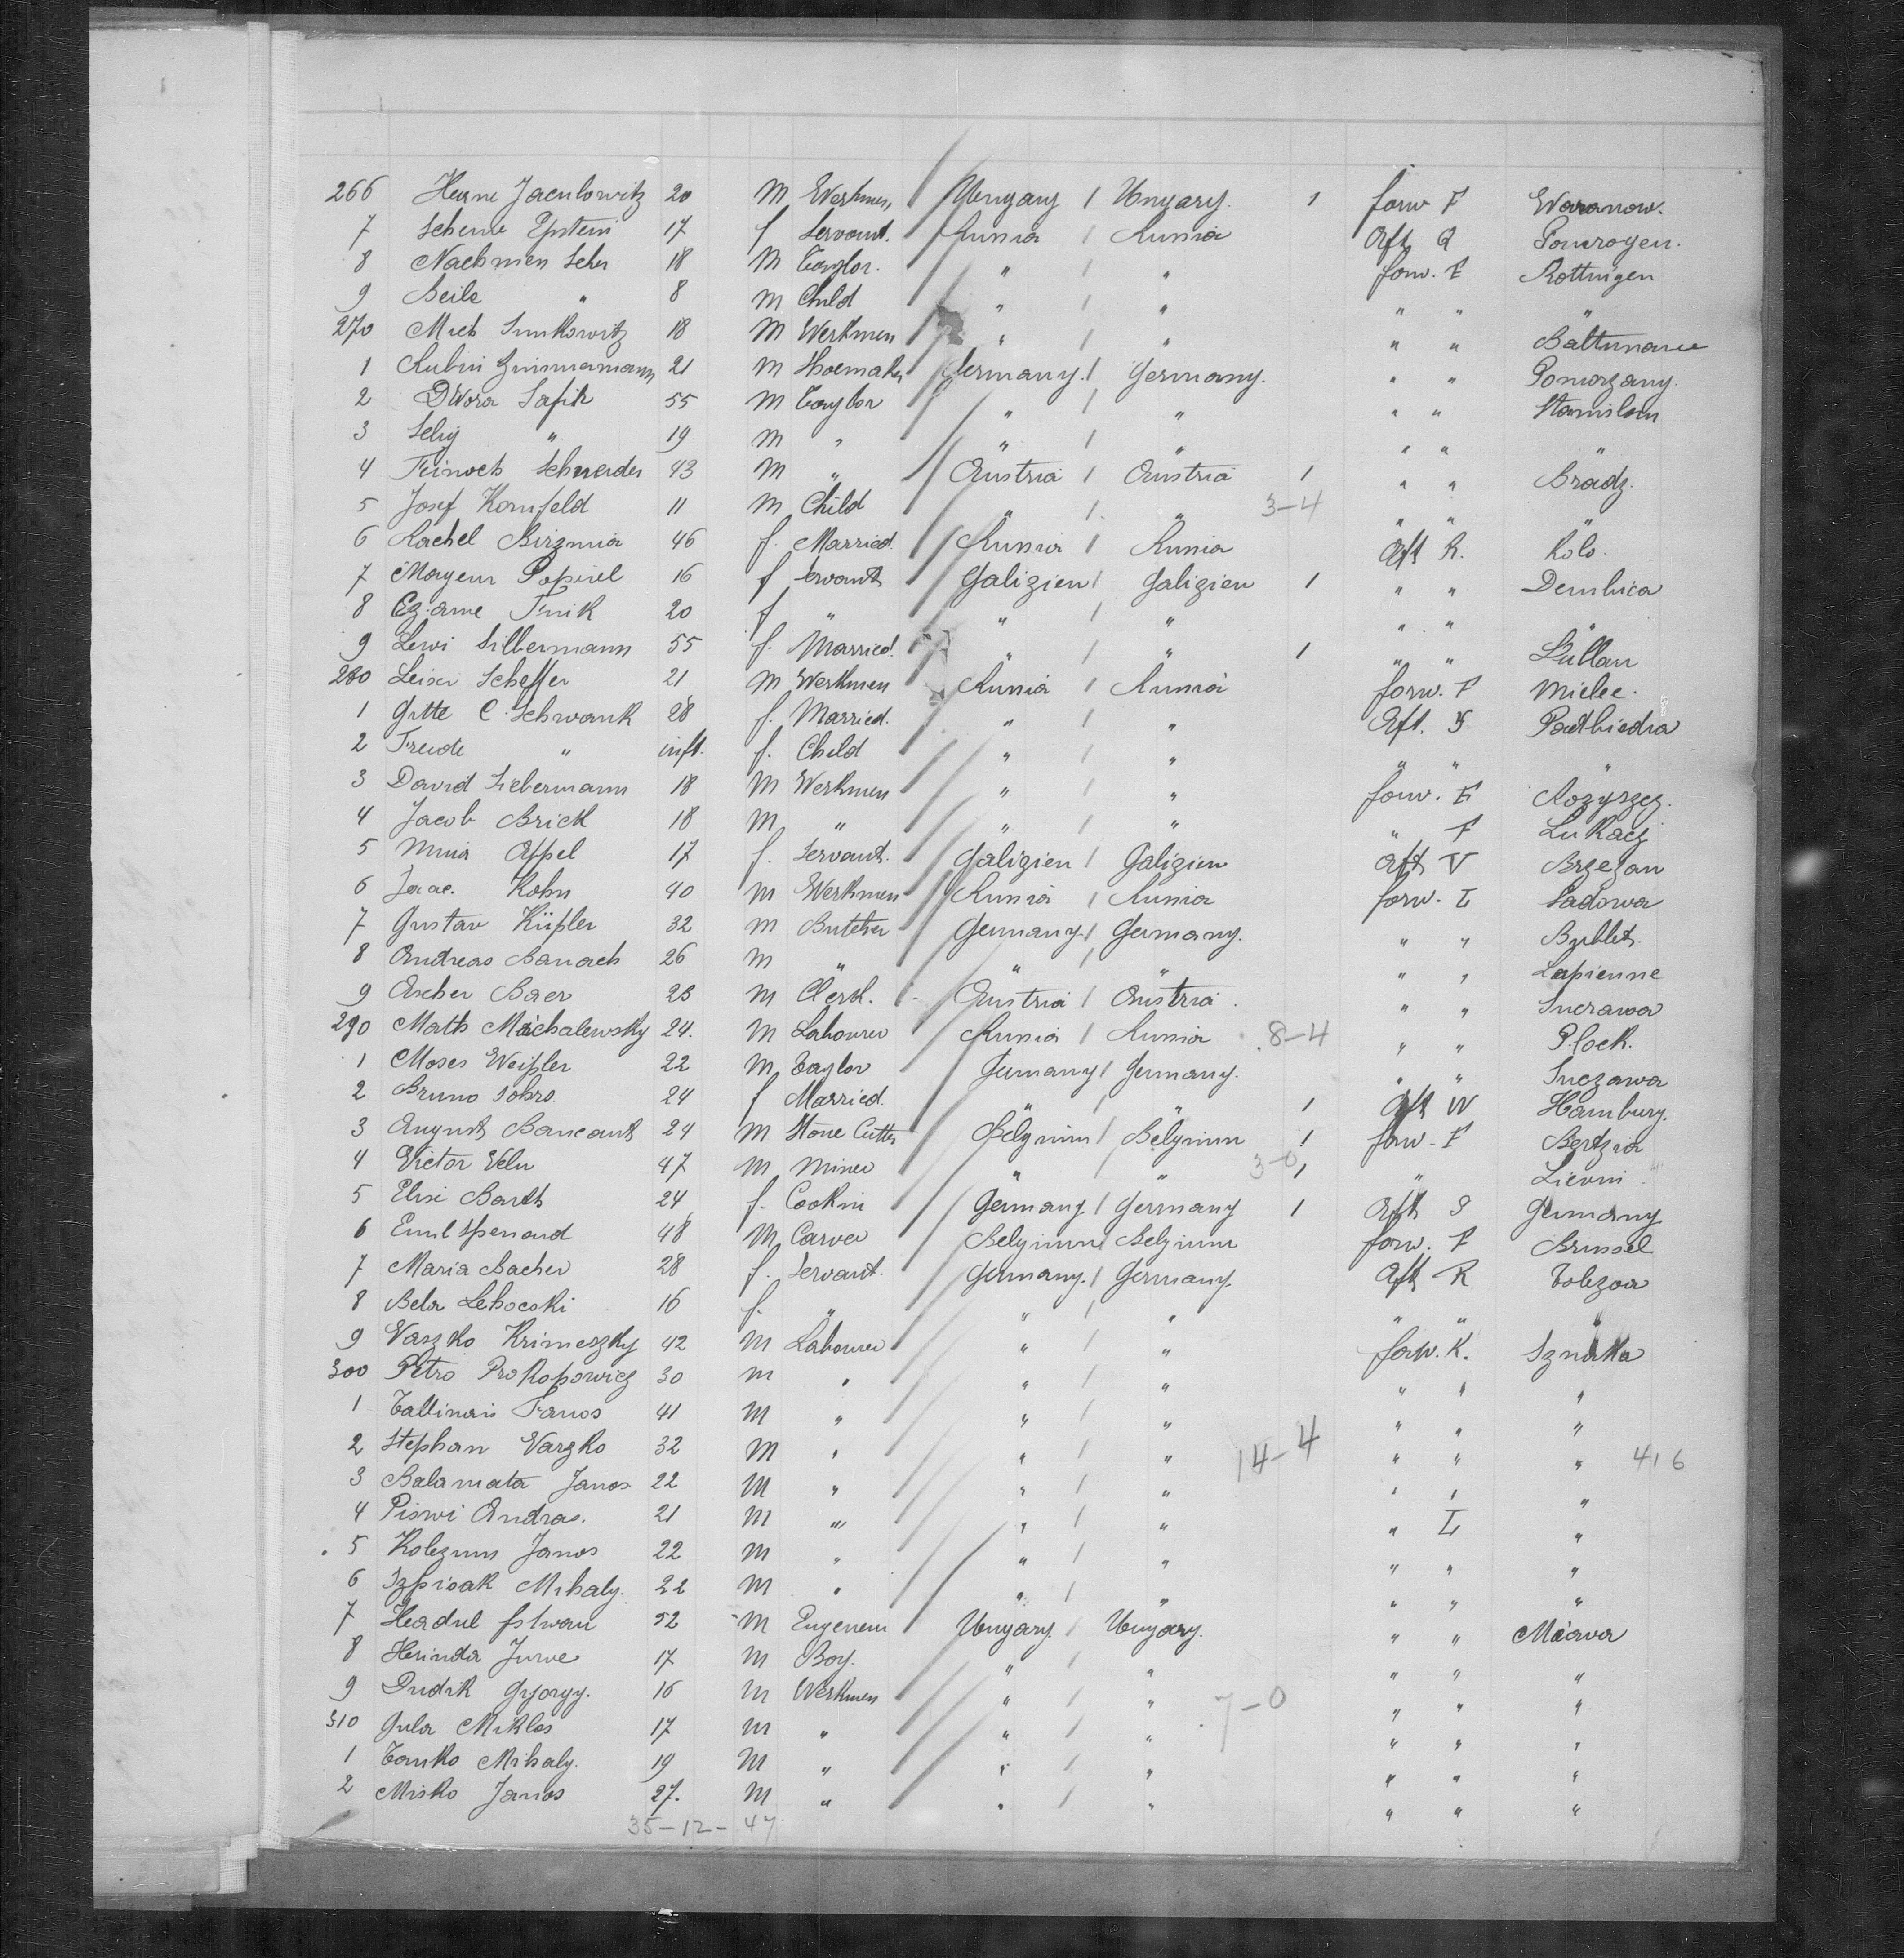 266 Herne Jaculowitz 20 M Werkmen Ungary / Ungary. 1 forw F Waranow.
7 Scheme Epstein 17 f Servant. Russia / Russia Aft Q Ponrogen.
8 Nachmen Scher 18 M Taylor. " / " forw. F Rottnigen
9 Beile " 8 M Child " / " " " "
270 Mich Simkowitz 18 M Werkmen " / " " " Baltimane
1 Rubin Zimmermann 21 M Shoemaker Germany. / Germany. " " Pomorzany.
2 DWora Safir 55 M Taylor " / " " " Stanislau
3 Selig " 19 M " " / " " " "
4 Feiwech Schneider 43 M " Austria / Austria 1 " " Bradz.
5 Josef Kornfeld 11 M Child " / " 3-4 " " "
6 Rachel Birznia 46 f. Married. Russia / Russia Aft R. Kolo.
7 Mayem Popiel 16 f Servant Galizien / Galizien 1 " " Dembica
8 Czarne Fink 20 f " " / " " " "
9 Lewi Silbermann 55 f. Married. " / " 1 " " Lullau
280 Leiser Scheffer 21 M Werkmen Russia / Russia forw. F Mielec.
1 Gitte C. Schwank 28 f. Married. " / " Aft. S Podbiedra
2 Freide " inft. f. Child " / " " " "
3 David Liebermann 18 M Werkmen " / " forw. F Rozyszcz.
4 Jacob Brick 18 M " " / " " F Lukacz
5 Minia Appel 17 f. Servant. Galizien / Galizien Aft V Brzezan
6 Isaac. Kohn 40 M Werkmen Russia / Russia forw. L Sadowa
7 Gustav Küpler 32 M Butcher Germany. / Germany. " " Bublitz.
8 Andreas Banach 26 M " " / " " " Lapienne
9 Ascher Baer 23 M Clerk. Austria / Austria. " " Sucrawa
290 Math Michalewsky 24. M Labourer Russia / Russia 8-4 " " Plock.
1 Moses Weissler 22 M Taylor Germany / Germany. " " Suczawa
2 Bruno Sohrs. 24 f Married. " / " 1 Aft W Hamburg.
3 August Baucant 24 M Stone Cutter Belgium / Belgium 1 forw. F Bertzia
4 Victor Velu 47 M Miner " / " 3-0 1 " Lievin
5 Elise Barth 24 f. Cookin Germany. / Germany 1 Aft S Germany
6 Emil Spenard 48 M Carver Belgium / Belgium forw. F Brussel
7 Maria Bacher 28 f. Servant. Germany. / Germany. Aft R Tolezoa
8 Bela Lehocski 16 f. " " / " " " "
9 Vaszko Krimeszky 42 M Labourer " / " forw. K. Sznaka
300 Petro Prokopowicz 30 M " " / " " " "
1 Tallinais Fanos 41 M " " / " " " "
2 Stephan Vargko 32 M " " / " 14-4 " " " 416
3 Balamata Janos 22 M " " / " " " "
4 Piswi Andras. 21 M " " / " " L "
5 Kolezum Janos 22 M " " / " " " "
6 Szpisak Mihaly. 22 M " " / " " " "
7 Headul Istwan 52 M Eugeneu Ungary. / Ungary. " " Miawa
8 Herinda Jurve 17 M Boy. " / " " " "
9 Dudik Gyorgy. 16 M Werkmen " / " 7-0 " " "
310 Gula Miklos 17 M " " / " " " "
1 Tomko Mihaly. 19 M " " / " " " "
2 Misko Janos 27. M " " / " " " "
35-12-47